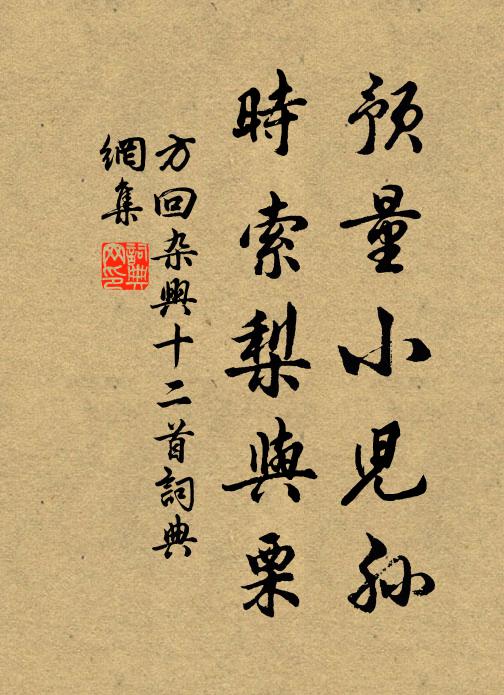 預量小兒孫
時索梨與栗
方回杂興十二首詞典
網集
詞典
网印